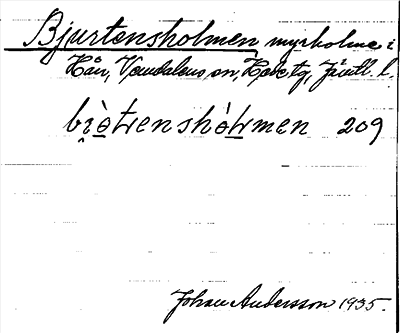 Bjurtensholmen myrholme i
Kån, Vemdalens sn, Hede tg, Jämtl. l.
bi̯ò̱tṟenshò̱̯lmen 209
Johan Andersson 1935.